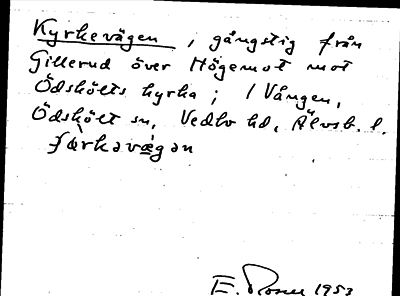 Kyrkevägen, gångstig från
Gillerud över Högemot mot
Ödskölts kyrka; / Vången,
Ödskölt sn, Vedbo hd, Älvsb. l.
E. Rosen 1953